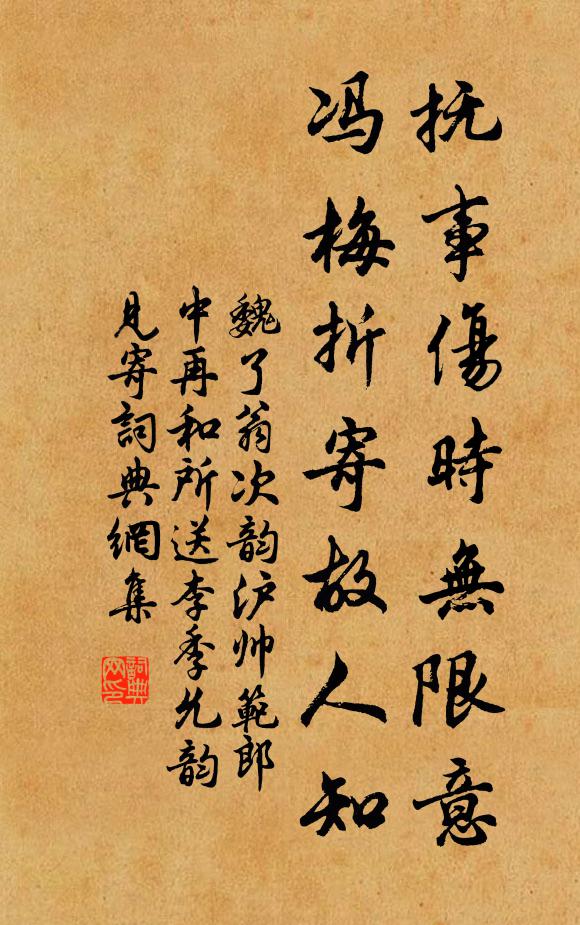 抚事傷時無限意
冯梅折寄故人知
魏了翁次韵沪帅範郎
中再和所送李季允韵
見寄詞典網集
詞典网印